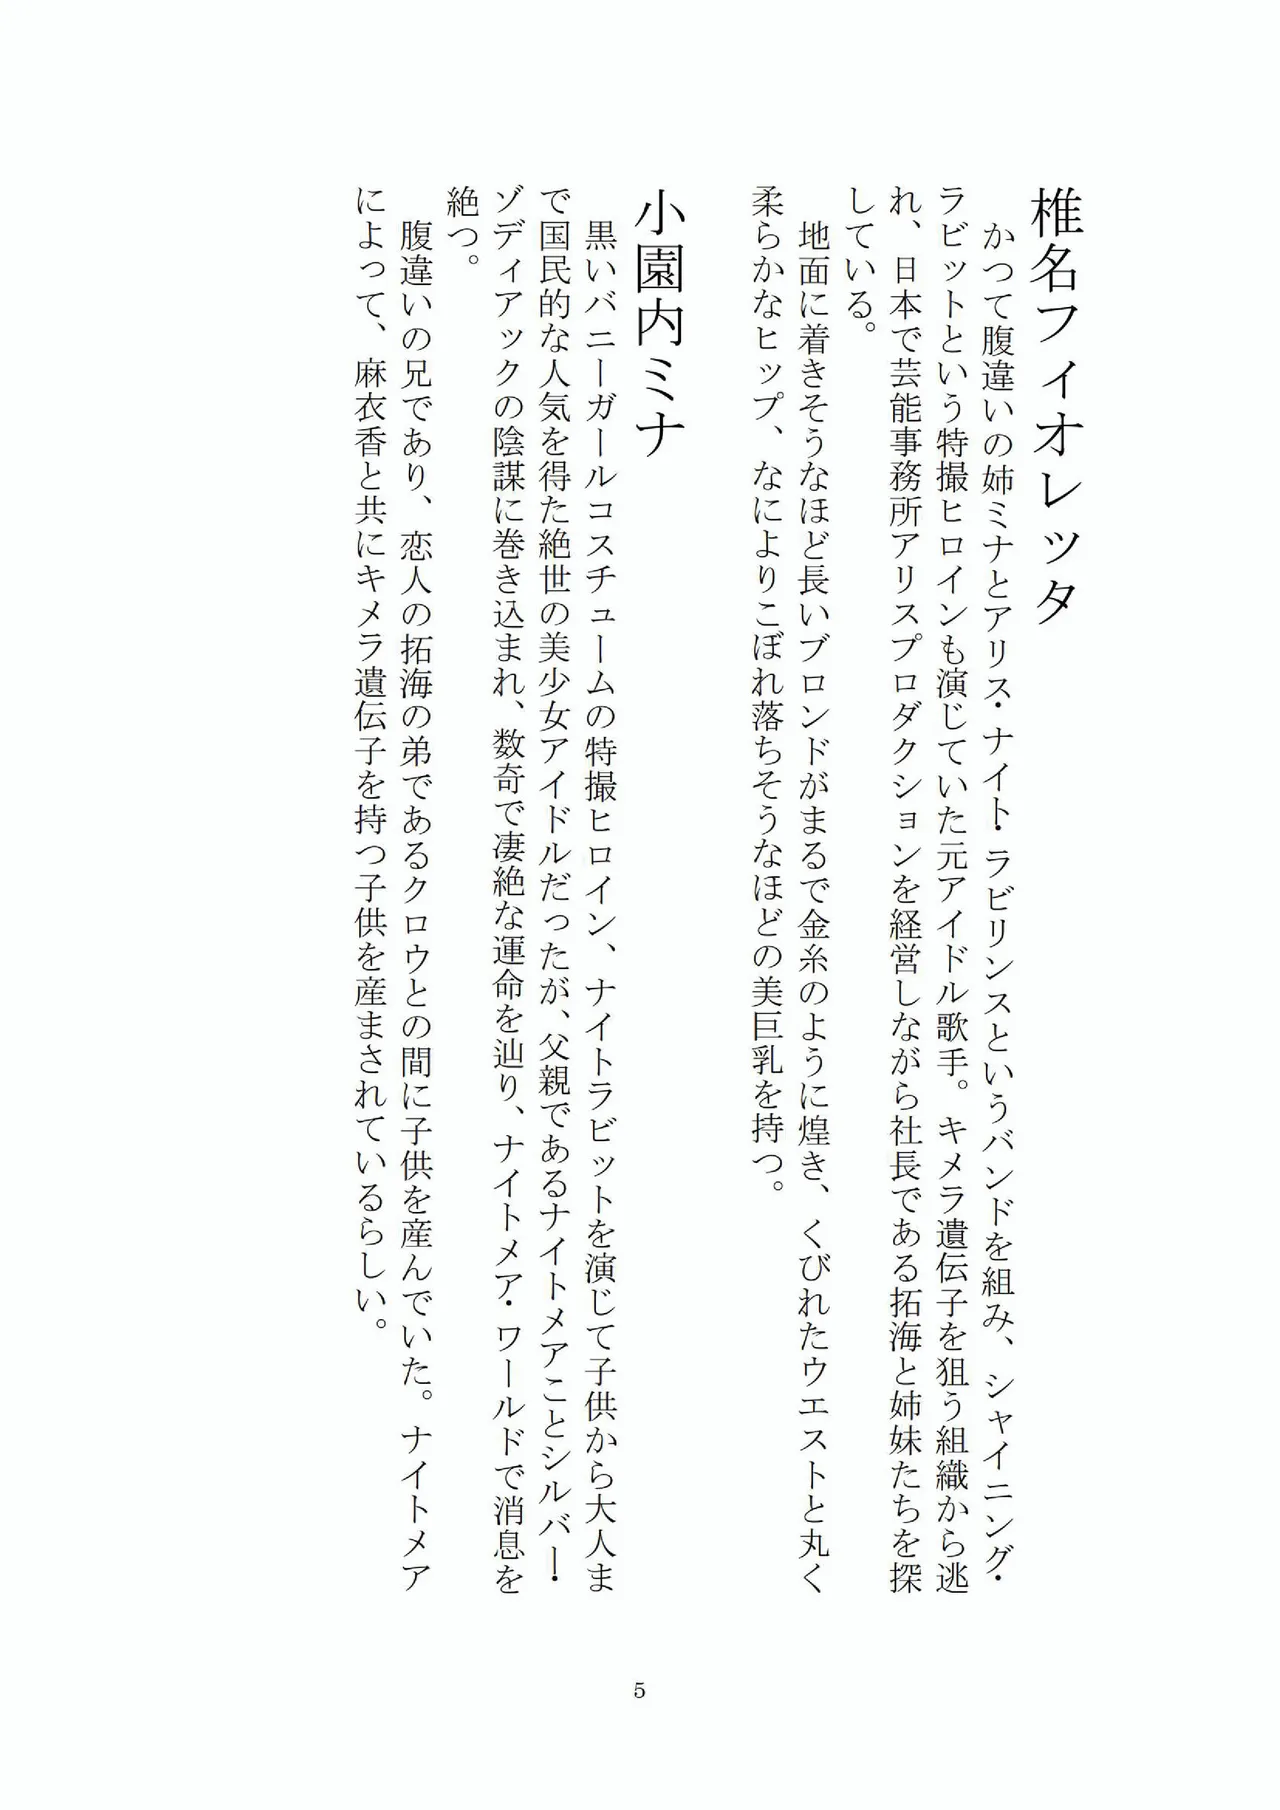 椎名フィオレッタ
かつて腹違いの姉ミナとアリス・ナイト・ラビリンスというバンドを組み、シャイニング・
ラビットという特撮ヒロインも演じていた元アイドル歌手。キメラ遺伝子を狙う組織から逃
れ、日本で芸能事務所アリスプロダクションを経営しながら社長である拓海と姉妹たちを探
している。
地面に着きそうなほど長いブロンドがまるで金糸のように煌き、くびれたウエストと丸く
柔らかなヒップ、なによりこぼれ落ちそうなほどの美巨乳を持つ。
小園内ミナ
黒いバニーガールコスチュームの特撮ヒロイン、ナイトラビットを演じて子供から大人ま
で国民的な人気を得た絶世の美少女アイドルだったが、父親であるナイトメアことシルバー・
ゾディアックの陰謀に巻き込まれ、数奇で凄絶な運命を辿り、ナイトメア・ワールドで消息を
絶つ。
腹違いの兄であり、恋人の拓海の弟であるクロウとの間に子供を産んでいた。ナイトメア
によって、麻衣香と共にキメラ遺伝子を持つ子供を産まされているらしい。
5